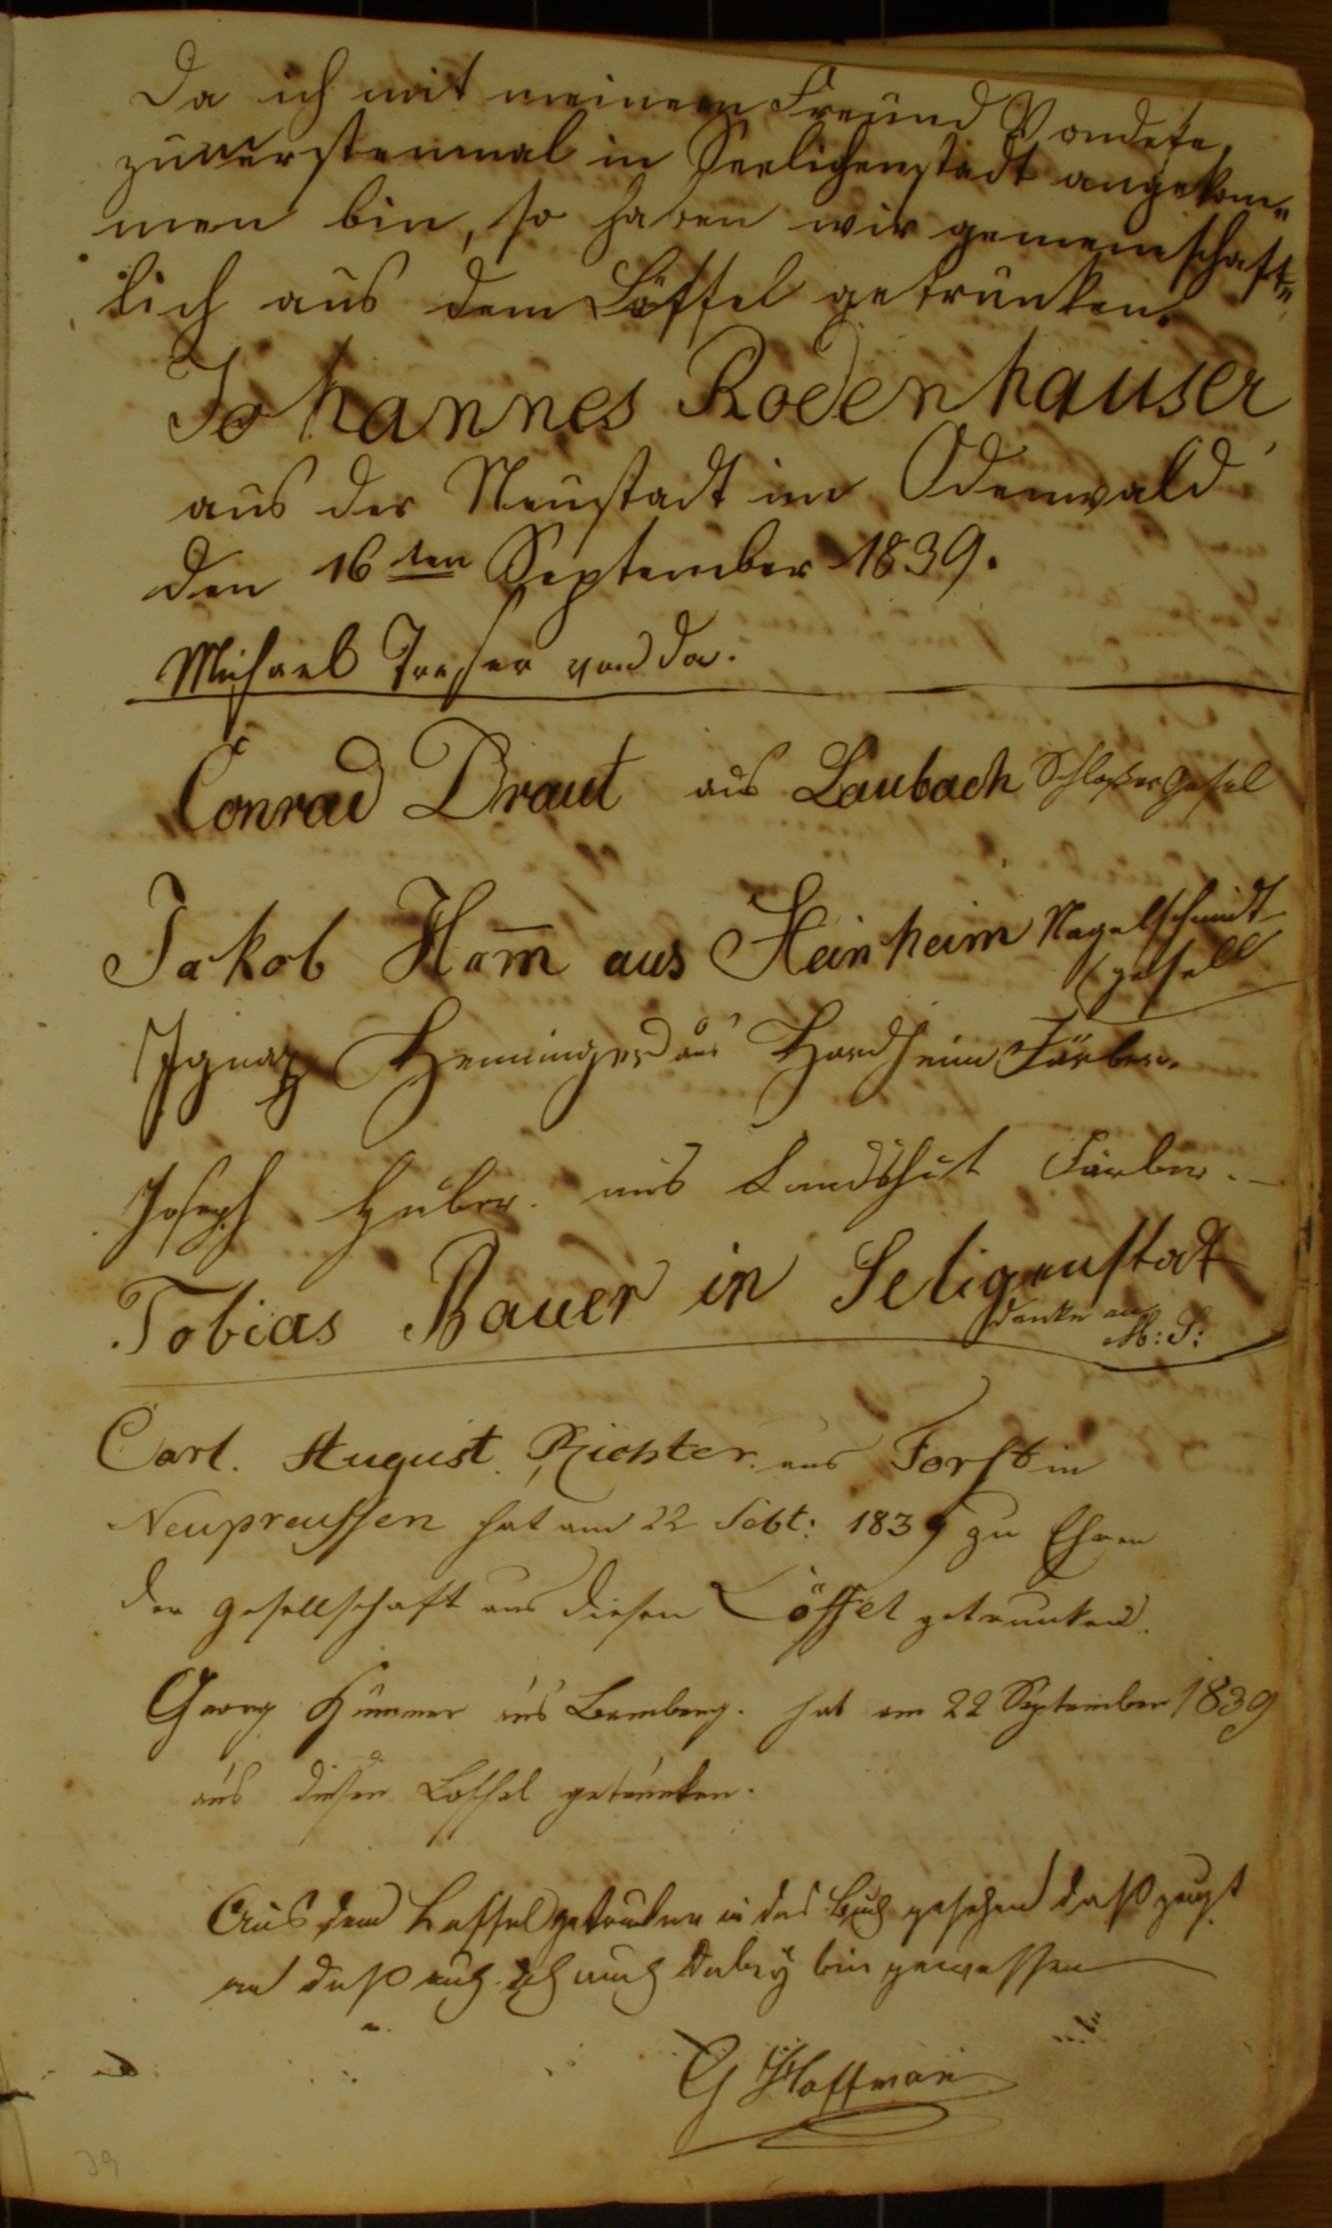 Da ich mit meinem Freund Vondete,
zumerstenmal in Seeligenstadt angekom„
men bin, so haben wir gemeinschaft„
lich aus dem Löffel getrunken.
Johannes Rodenhauser
aus der Neustadt im Odenwald
den 16ten September 1839.
Michael Tresser von da.
Conrad Draut aus Laubach Schlosser Gesel
Jakob Ham̅ aus Steinheim Nagelschmidt
gesell
Ignaz Henninger aus Hardheim Färber.
Joseph Huber aus Landshut Färber.
Tobias Bauer in Seligenstat
Denke an
M: S:
Carl. August. Richter. aus Forst in
Neupreussen hat am 22 Sebt: 1839 zu Ehren
der Gesellschaft aus diesen Löffel getrunken.
Georg Kümmer aus Bamberg. hat am 22 September 1839
aus diesen Loffel getrunken.
Aus dem Leffel getrunken in das Buch gesehen daß zeugt
an daß auch ich auch dabey bin gewessen
G Hoffman
39